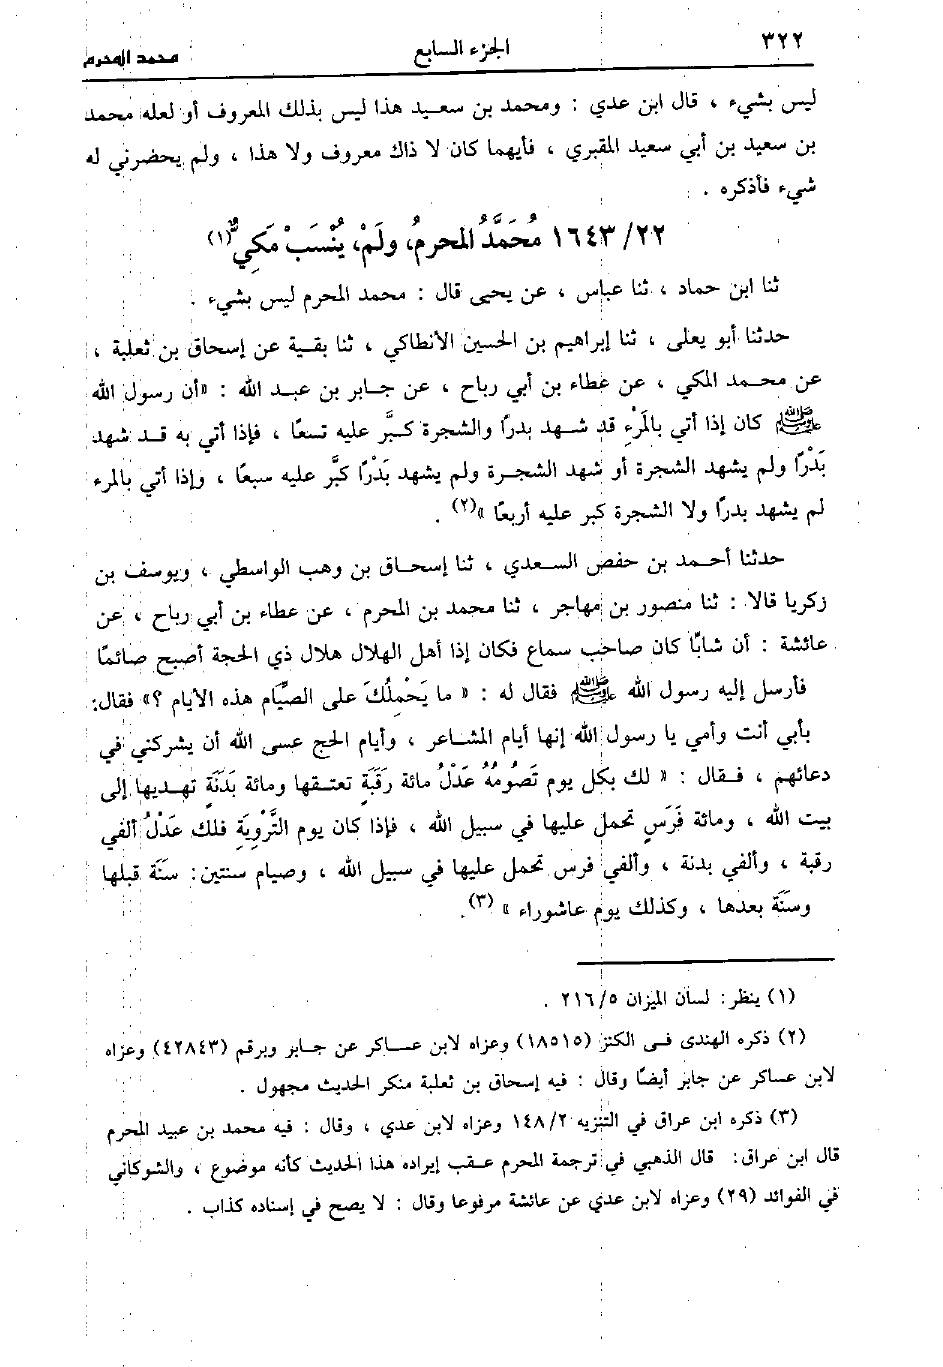 ٣٢٢ الجزء السابع محمد المحرم
ليس بشيء ، قال ابن عدي : ومحمد بن سعيد هذا ليس بذلك المعروف أو لعله محمد
بن سعيد بن أبي سعيد المقبري ، فأيهما كان لا ذاك معروف ولا هذا ، ولم يحضرني له
شيء فأذكره .
١٦٤٣/٢٢ مُحَمَّدُ المحرمُ، ولَمْ، يُنْسَبْ مَكِيٌّ(١)
ثنا ابن حماد ، ثنا عباس ، عن يحيى قال : محمد المحرم ليس بشيء .
حدثنا أبو يعلى ، ثنا إبراهيم بن الحسين الأنطاكي ، ثنا بقية عن إسحاق بن ثعلبة ،
عن محمد المكي ، عن عطاء بن أبي رباح ، عن جابر بن عبد الله : «أن رسول الله
ﷺ كان إذا أتي بالمَرْءِ قد شهد بدرًا والشجرة كبَّر عليه تسعًا ، فإذا أتي به قد شهد
بَدْرًا ولم يشهد الشجرة أو شهد الشجرة ولم يشهد بَدْرًا كبَّر عليه سبعًا ، وإذا أتي بالمرء
لم يشهد بدرًا ولا الشجرة كبر عليه أربعًا »(٢) .
حدثنا أحمد بن حفص السعدي ، ثنا إسحاق بن وهب الواسطي ، ويوسف بن
زكريا قالا : ثنا منصور بن مهاجر ، ثنا محمد بن المحرم ، عن عطاء بن أبي رباح ، عن
عائشة : أن شابًا كان صاحب سماع فكان إذا أهل الهلال هلال ذي الحجة أصبح صائمًا
فأرسل إليه رسول الله ﷺ فقال له : « ما يَحْمِلُكَ على الصِّيَام هذه الأيام ؟» فقال:
بأبي أنت وأمي يا رسول الله إنها أيام المشاعر ، وأيام الحج عسى الله أن يشركني في
دعائهم ، فقال : « لك بكل يوم تَصُومُهُ عَدْلُ مائة رَقَبَةٍ تعتقها ومائة بَدَنَةٍ تهديها إلى
بيت الله ، ومائة فَرَسٍ تحمل عليها في سبيل الله ، فإذا كان يوم التَّرْوِيَةِ فلك عَدْلُ ألفي
رقبة ، وألفي بدنة ، وألفي فرس تحمل عليها في سبيل الله ، وصيام سنتين: سنَة قبلها
وسنَة بعدها ، وكذلك يوم عاشوراء »(٣).
(١) ينظر: لسان الميزان ٢١٦/٥ .
(٢) ذكره الهندى فى الكنز (١٨٥١٥) وعزاه لابن عساكر عن جابر وبرقم (٤٢٨٤٣) وعزاه
لابن عساكر عن جابر أيضًا وقال : فيه إسحاق بن ثعلبة منكر الحديث مجهول .
(٣) ذكره ابن عراق في التنزيه ١٤٨/٢ وعزاه لابن عدي ، وقال : فيه محمد بن عبيد المحرم
قال ابن عراق: قال الذهبي في ترجمة المحرم عقب إيراده هذا الحديث كأنه موضوع ، والشوكاني
في الفوائد (٢٩) وعزاه لابن عدي عن عائشة مرفوعا وقال : لا يصح في إسناده كذاب .